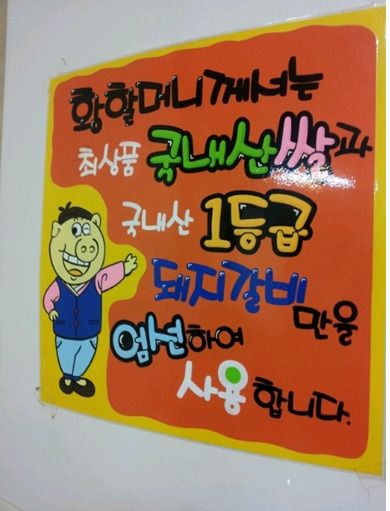 황할머니께서는
최상품 국내산 쌀과
국내산 1등급
돼지갈비만을
엄선하여
사용합니다.